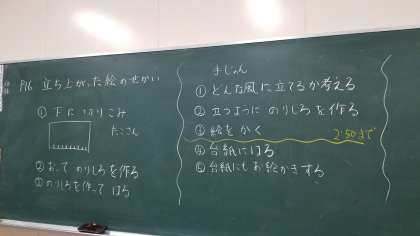 P16 立ち上がった絵のせかい
① 下に つりこみ
たくさん
② あって のりしろを作る
③ のりしろを使って はる
手じゅん
① どんな風に立てるか考える
② 立つように のりしろを作る
③ 絵をかく
2:50まで
④ 台紙にはる
⑤ 台紙にもお絵かきする